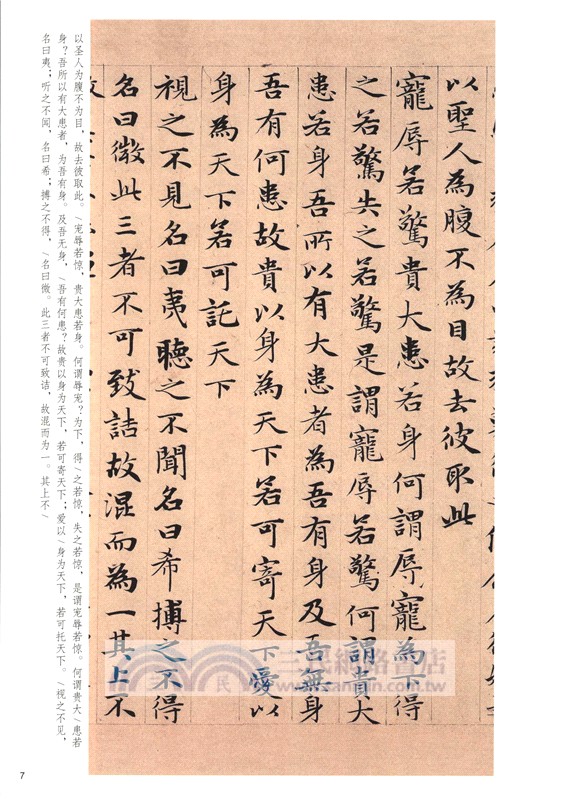 以聖人為腹不為目故去彼取此
寵辱若驚貴大患若身何謂辱寵為下得
之若驚失之若驚是謂寵辱若驚何謂貴大
患若身吾所以有大患者為吾有身及吾無身
吾有何患故貴以身為天下若可寄天下愛以
身為天下若可託天下
視之不見名曰夷聽之不聞名曰希搏之不得
名曰微此三者不可致詰故混而為一其上不
以圣人为腹不为目，故去彼取此。\宠辱若惊，贵大患若身。何谓辱宠？为下，得\之若惊，失之若惊，是谓宠辱若惊。何谓贵大\患若
身？吾所以有大患者，为吾有身。及吾无身，\吾有何患？故贵以身为天下，若可寄天下；爱以\身为天下，若可托天下。\视之不见，
名曰夷；听之不闻，名曰希；搏之不得，\名曰微。此三者不可致诘，故混而为一。其上不\
三民網路書店
www.sanmin.com.tw
7